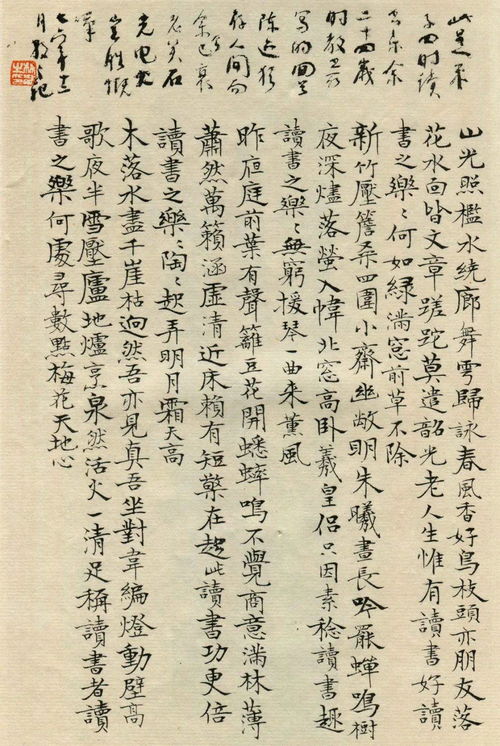 山光照檻水繞廊舞雩歸詠春風香好鳥枝頭亦朋友落
花水面皆文章蹉跎莫遣韶光老人生惟有讀書好讀
書之樂〻何如綠滿窓前草不除
新竹壓簷桑四圍小齋幽敞明朱曦晝長吟罷蟬鳴樹
夜深燼落螢入幃北窓高卧羲皇侶只因素稔讀書趣
讀書之樂〻無窮援琴一曲来薰風
昨夜庭前葉有聲籬豆花開蟋蟀鳴不覺商意滿林薄
蕭然萬籟涵虛清近床賴有短檠在趁此讀書功更倍
讀書之樂〻陶〻起弄明月霜天高
木落水盡千崖枯迥然吾亦見真吾坐對韋編燈動壁高
歌夜半雪壓廬地爐烹泉然活火一清足稱讀書者讀
書之樂何處尋數點梅花天地心
此是
子四時讀
書樂余
二十四歲
時教
寫的回
陳迹猶
存人間而
余已衰
老矣石
火電光
豈勝慨
嘆
七六年十二
月記